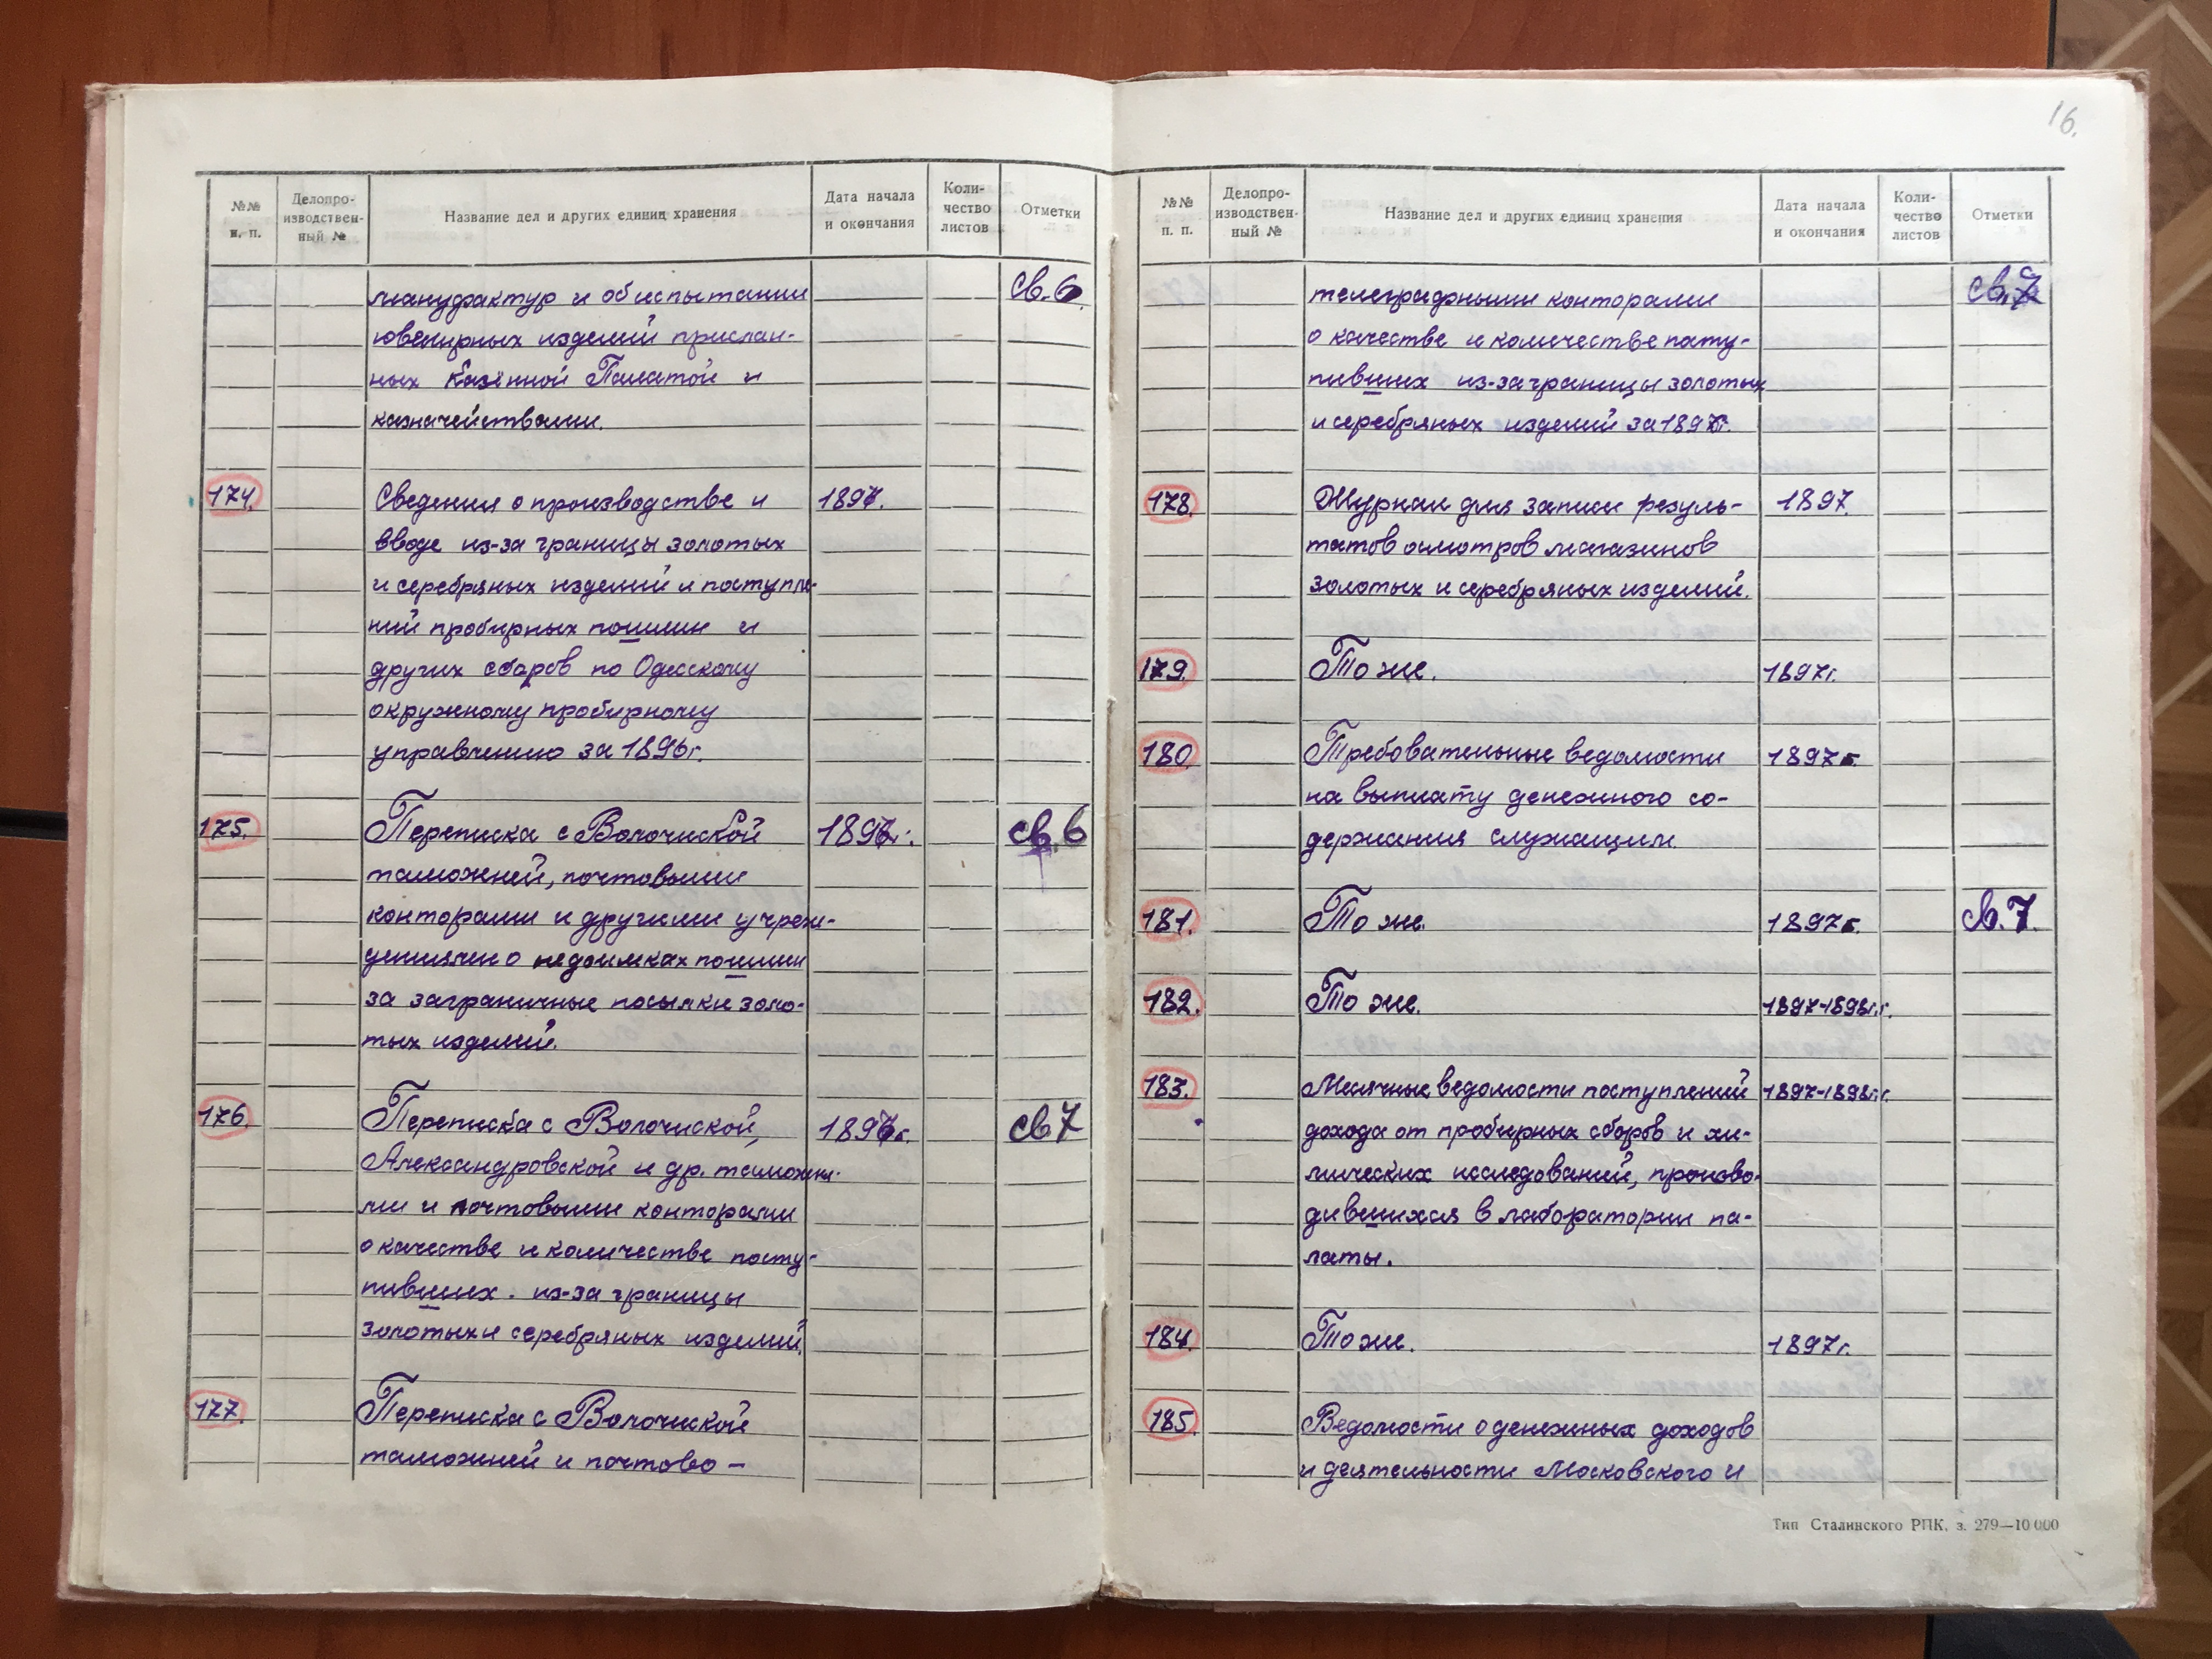 №№ п. п.
Делопроизводственный №
Название дел и других единиц хранения
Дата начала и окончания
Количество листов
Отметки
мануфактур и об испытании св. 6
ювелирных изделий прислан-
ных Казённой Палатой и
казначействами.
174. Сведения о производстве и 1897.
ввозе из-за границы золотых
и серебряных изделий и поступле-
ний пробирных пошлин и
других сборов по Одесскому
окружному пробирному
управлению за 1896 г.
175. Переписка с Волочиской 1897г. св. 6
таможней, почтовыми
конторами и другими учреж-
дениями о недоимках пошлин
за заграничные посылки золо-
тых изделий.
176. Переписка с Волочиской, 1897г. св 7
Александровской и др. таможня-
ми и почтовыми конторами
о качестве и количестве посту-
пивших. из-за границы
золотых и серебряных изделий.
177. Переписка с Волочиской
таможней и почтово-
16.
№№ п. п.
Делопроизводственный №
Название дел и других единиц хранения
Дата начала и окончания
Количество листов
Отметки
телеграфными конторами св. 7
о качестве и количестве посту-
пивших из-за границы золотых
и серебряных изделий за 1897г.
178. Журнал для записи резуль- 1897.
татов осмотров магазинов
золотых и серебряных изделий.
179. То же. 1897г.
180. Требовательные ведомости 1897г.
на выплату денежного со-
держания служащим.
181. То же. 1897г. св. 7.
182. То же. 1897-1898г.г.
183. Месячные ведомости поступлений 1897-1898г.г.
дохода от пробирных сборов и хи-
мических исследований, произво-
дившихся в лаборатории па-
латы.
184. То же. 1897г.
185. Ведомости о денежных доходов
и деятельности Московского и
Тип Сталинского РПК, з. 279—10 000